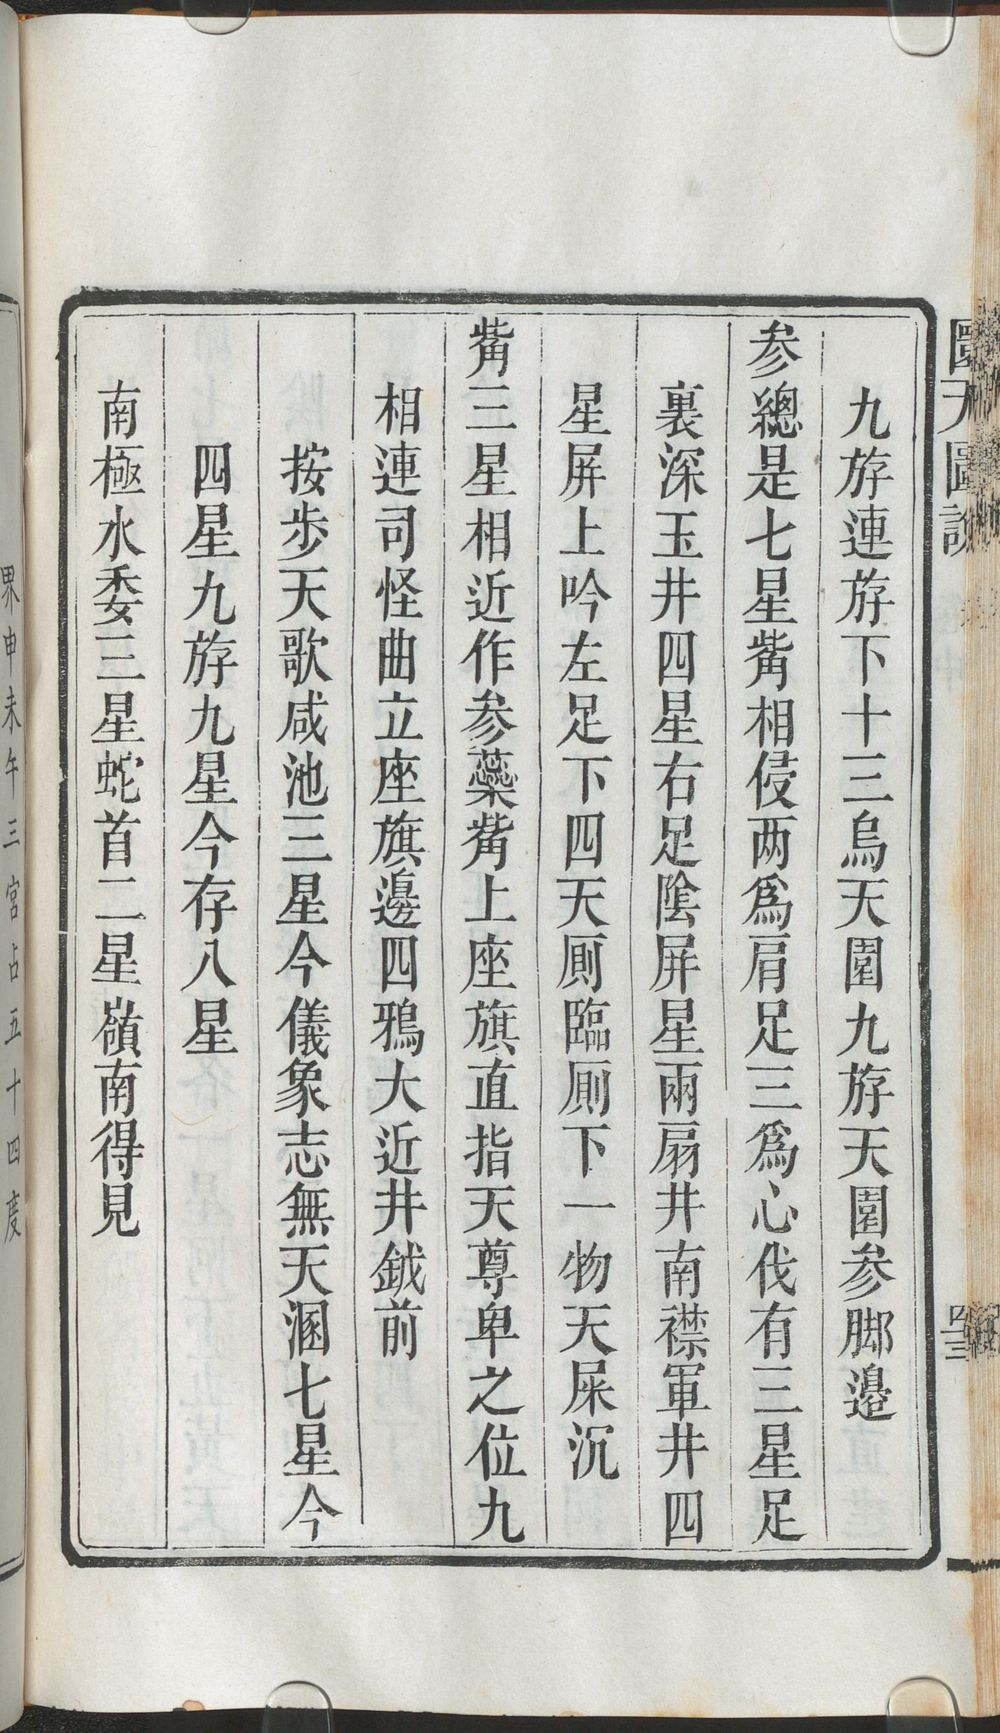 圜天圖說
四三
九斿連斿下十三烏天園九斿天園参脚邊
参總是七星觜相侵两爲肩足三爲心伐有三星足
裏深玉井四星右足陰屏星兩扇井南襟軍井四
星屏上吟左足下四天厠臨厠下一物天屎沉
觜三星相近作参蘂觜上座旗直指天尊卑之位九
相連司怪曲立座旗邊四鴉大近井鉞前
按步天歌咸池三星今儀象志無天溷七星今
四星九斿九星今存八星
南極水委三星蛇首二星嶺南得見
界申未午三宮占五十四度